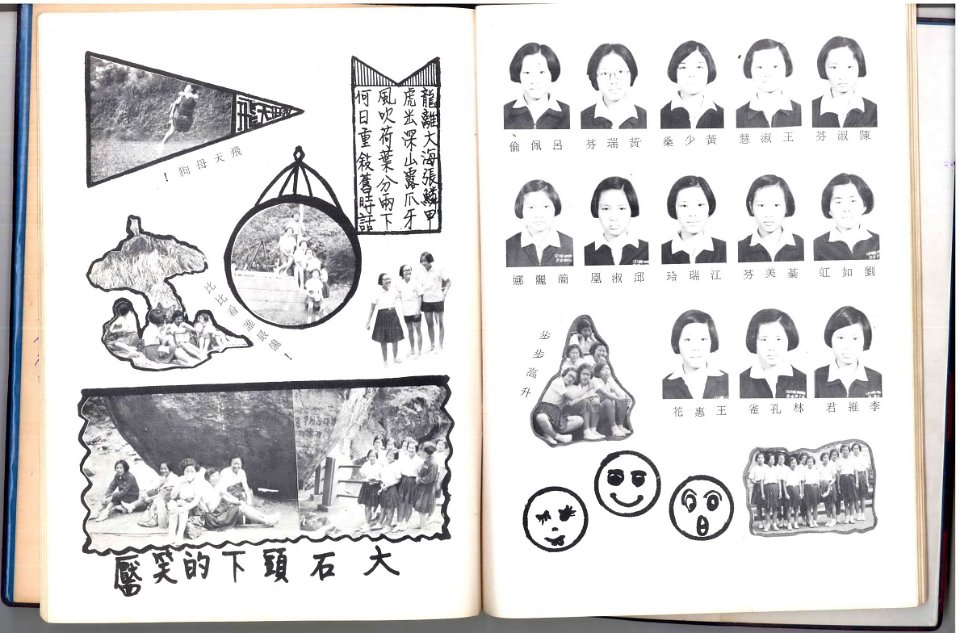 龍離大海張鱗甲
虎出深山露爪牙
風吹荷葉分兩下
何日重敍舊時話
飛天母狗!
比比看誰最!
大石頭下的笑靨
陳淑芬 王淑慧 黃少 黃瑞芬 呂佩倫
劉如虹 葉美芬 江瑞玲 邱淑凰
步步高升
李維君 林孔雀 王惠花